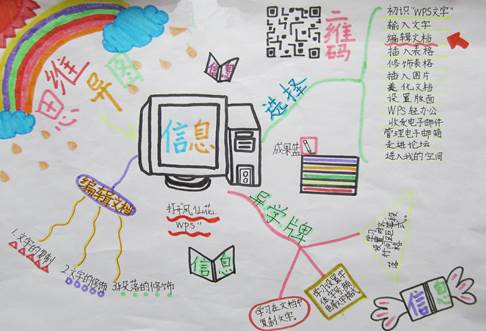 思维导图
二维码
信息
选择
初识"WPS文字"
输入文字
编辑文档
插入表格
修饰表格
插入图片
美化文档
设置版面
WPS轻办公
收发电子邮件
管理电子邮箱
走进论坛
进入我的空间
信息
成果篮
编辑文档
1.文字的复制
2.文字的修饰
3.段落的修饰
WPS"
信息
导学牌
学习在文档中
复制文字。
学习设置字
信息